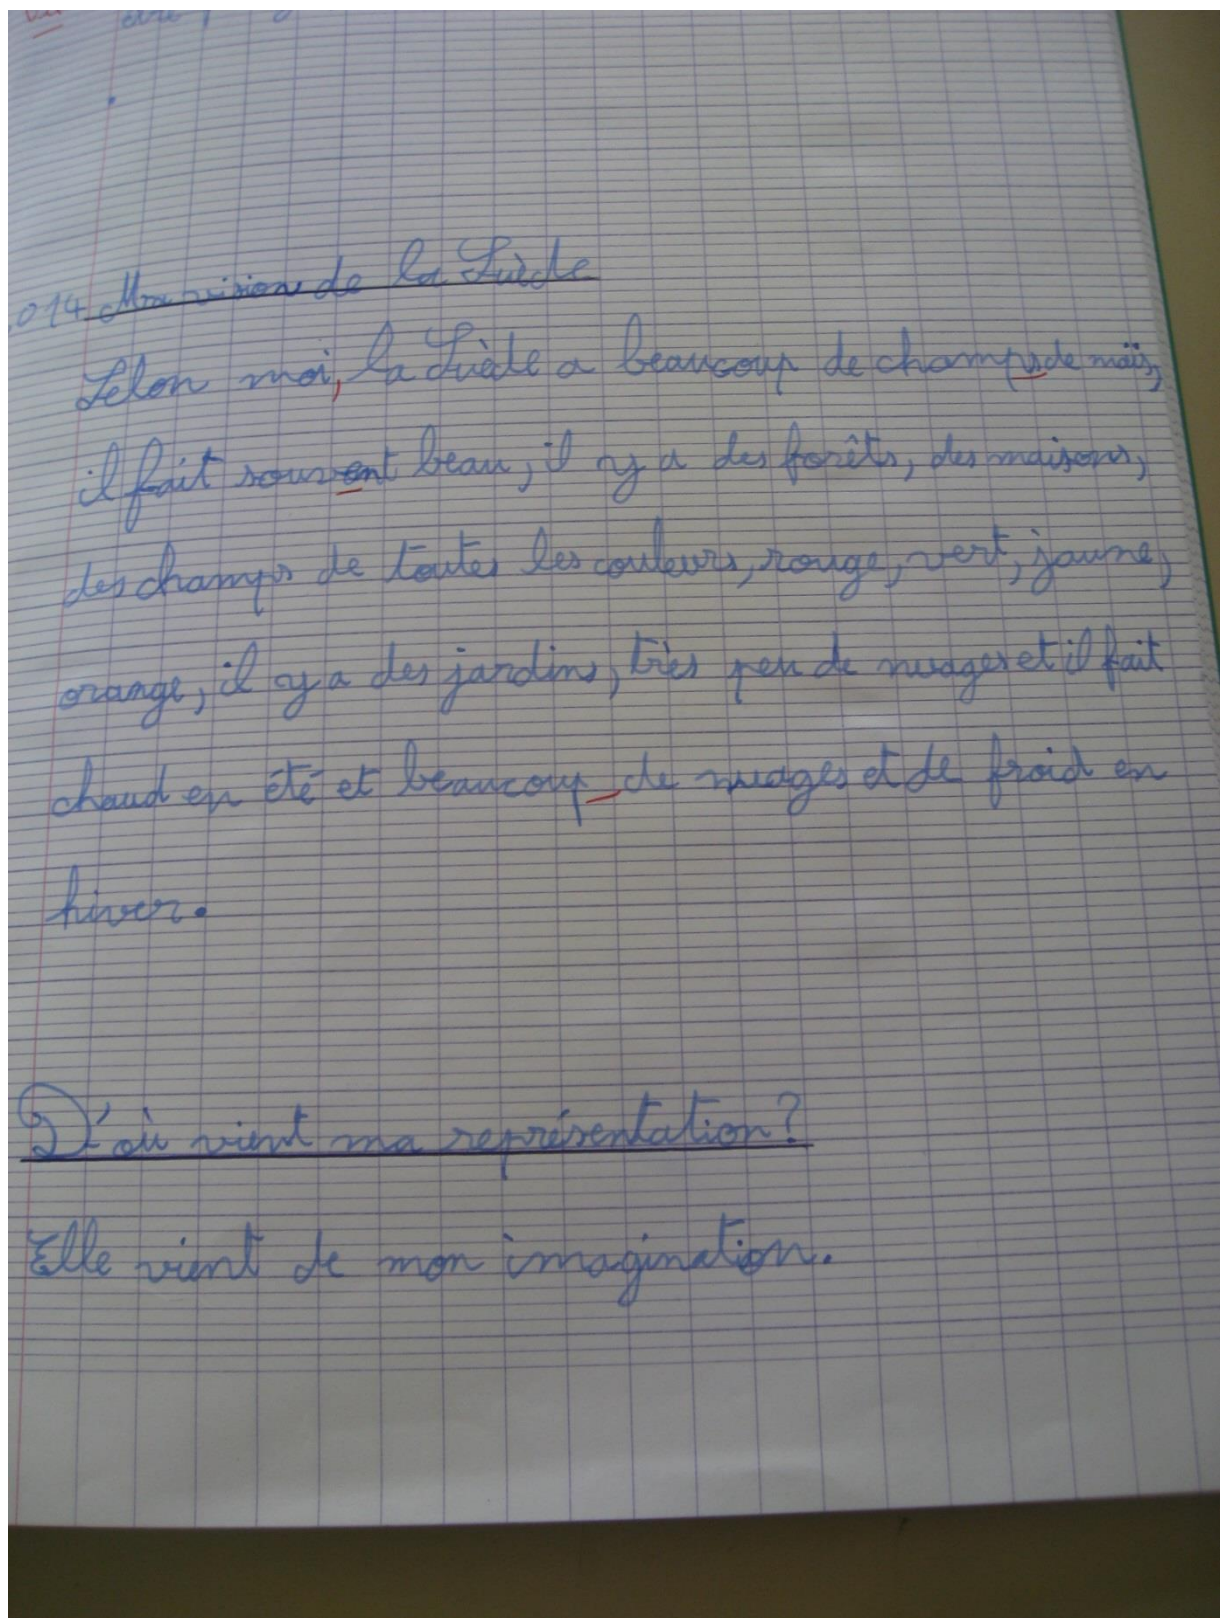 014 Ma vision de la Suède
Selon moi, la Suède a beaucoup de champs de maïs,
il fait souvent beau, il y a des forêts, des maisons,
des champs de toutes les couleurs, rouge, vert, jaune,
orange, il y a des jardins, très peu de nuages et il fait
chaud en été et beaucoup de nuages et de froid en
hiver.
D'où vient ma représentation?
Elle vient de mon imagination.